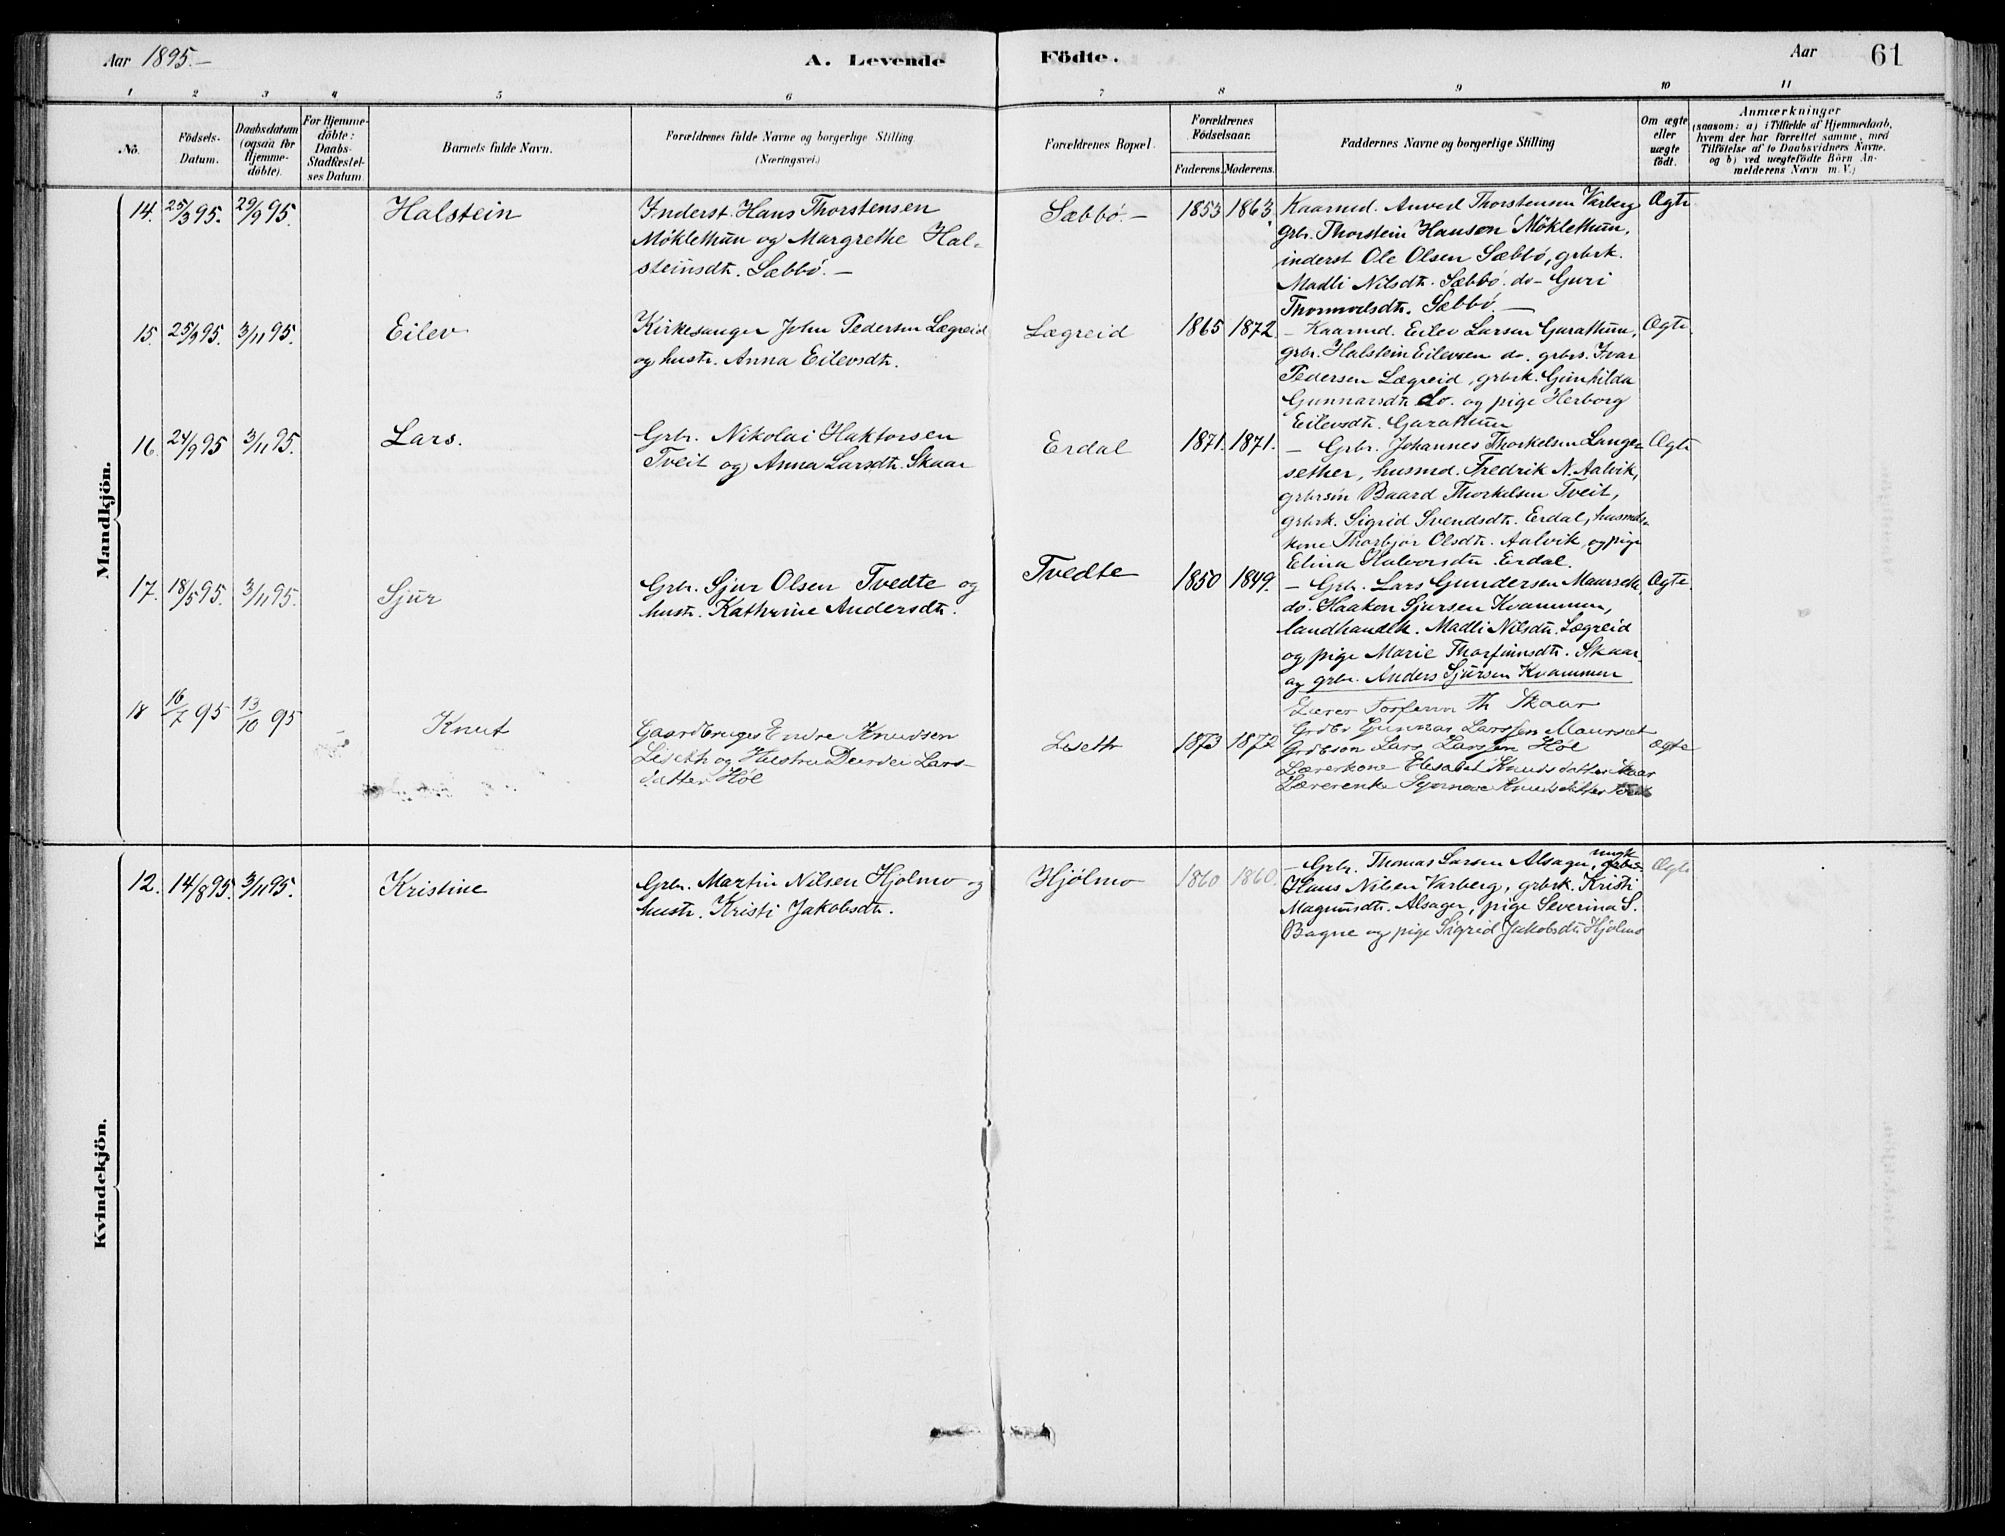 Aar 1895.—
A. Levende Födte.
Aar
61
1 2 3 4 5 6 7 8 9 10 11
No.
Födsels-
Datum.
Daabsdatum
(ogsaa for
Hjemme-
döbte).
For Hjemme-
döbte:
Daabs-
Stadfæstel-
ses Datum
Barnets fulde Navn.
Forældrenes fulde Navne og borgerlige Stilling
(Næringsvei.)
Forældrenes Bopæl.
Forældrenes
Födselsaar.
Faderens. Moderens.
Faddernes Navne og borgerlige Stilling
Om ægte
eller
uægte
født.
Anmærkninger
(saasom: a) i Tilfælde af Hjemmedaab,
hvem der har forrettet samme, med
Tilföielse af to Daabsvidners Navne.
og b) ved uægtefödte Börn An-
melderens Navn m.V.)
Mandkjön.
14. 25/3 95. 29/9 95.
Halstein
Inderst. Hans Thorstensen
Möklethun og Margrethe Hal-
steinsdtr. Sæbbö.—
Sæbbö.—
1853 1863.
Kaarmd. Anved Thorstensen Varberg
grbr. Thorstein Hanson Möklethun,
inderst Ole Olsen Sæbbö, grbrk.
Madli Nilsdtr. Sæbbö. do— Guri
Thormodsdtr. Sæbbö.—
Ægte
15. 25/9 95. 3/11 95.
Eilev
Kirkesanger John Pedersen Lægreid
og hustr. Anna Eilevsdtr.
Lægreid
1865 1872
— Kaarmd. Eilev Larsen Garathun,
grbr. Halstein Eilevsen do. grbrs. Ivar
Pedersen Lægreid, grbrk. Gunhilda
Gunnarsdtr. do. og pige Herborg
Eilevsdtr. Garathun
Ægte
16. 24/9 95 3/11 95.
Lars.
Grbr. Nikolai Haktorsen
Tveit og Anna Larsdtr. Skaar
Erdal
1871. 1871.
— Grbr. Johannes Thorkelsen Lange-
sether, husmd. Fredrik N. Aalvik,
grbrsön Baard Thorkelsen Tveit,
grbrk. Sigrid Svendsdtr. Erdal, husmds-
kone Thorbjør Olsdtr. Aalvik, og pige
Elina Halvorsdtr. Erdal.
Ægte
17. 18/5 95. 3/11 95.
Sjur
Grbr. Sjur Olsen Tvedte og
hustr. Kathrine Andersdtr.
Tvedte
1850 1849.
— Grbr. Lars Gundersen Maurseth,
do. Haakon Sjursen Kvammen,
landhandlk. Madli Nilsdtr. Lægreid
og pige Marie Thorfinnsdtr. Skaar
og grbr. Anders Sjursen Kvammen
Ægte.
18 16/7 95 13/10 95
Knut
Gaardbruger Endre Knudsen
Liseth og Hustru Lars-
datter Høl
Liseth
1873 1872
Lærer Torfinn Th Skaar
Grdbr Gunnar Larssen Maurset
Grdbson Lars Larssen Høl
Lærerkone Elesabet Knudsdatter Skaar
Lærerenke Synneve Knudsdatter
Ægte
Kvindekjön.
12. 14/8 95. 3/11 95.
Kristine
Grbr. Martin Nilsen Hjølmo og
hustr. Kristi Jakobsdtr.
Hjølmo
1860 1860.
— Grbr. Thomas Larsen Alsager, ungk.
Hans Nilsen Varberg, grbrk. Kristi
Magnusdtr. Alsager, pige Severina S.
Bagne og pige Sigrid Jakobsdtr Hjølmo
Ægte